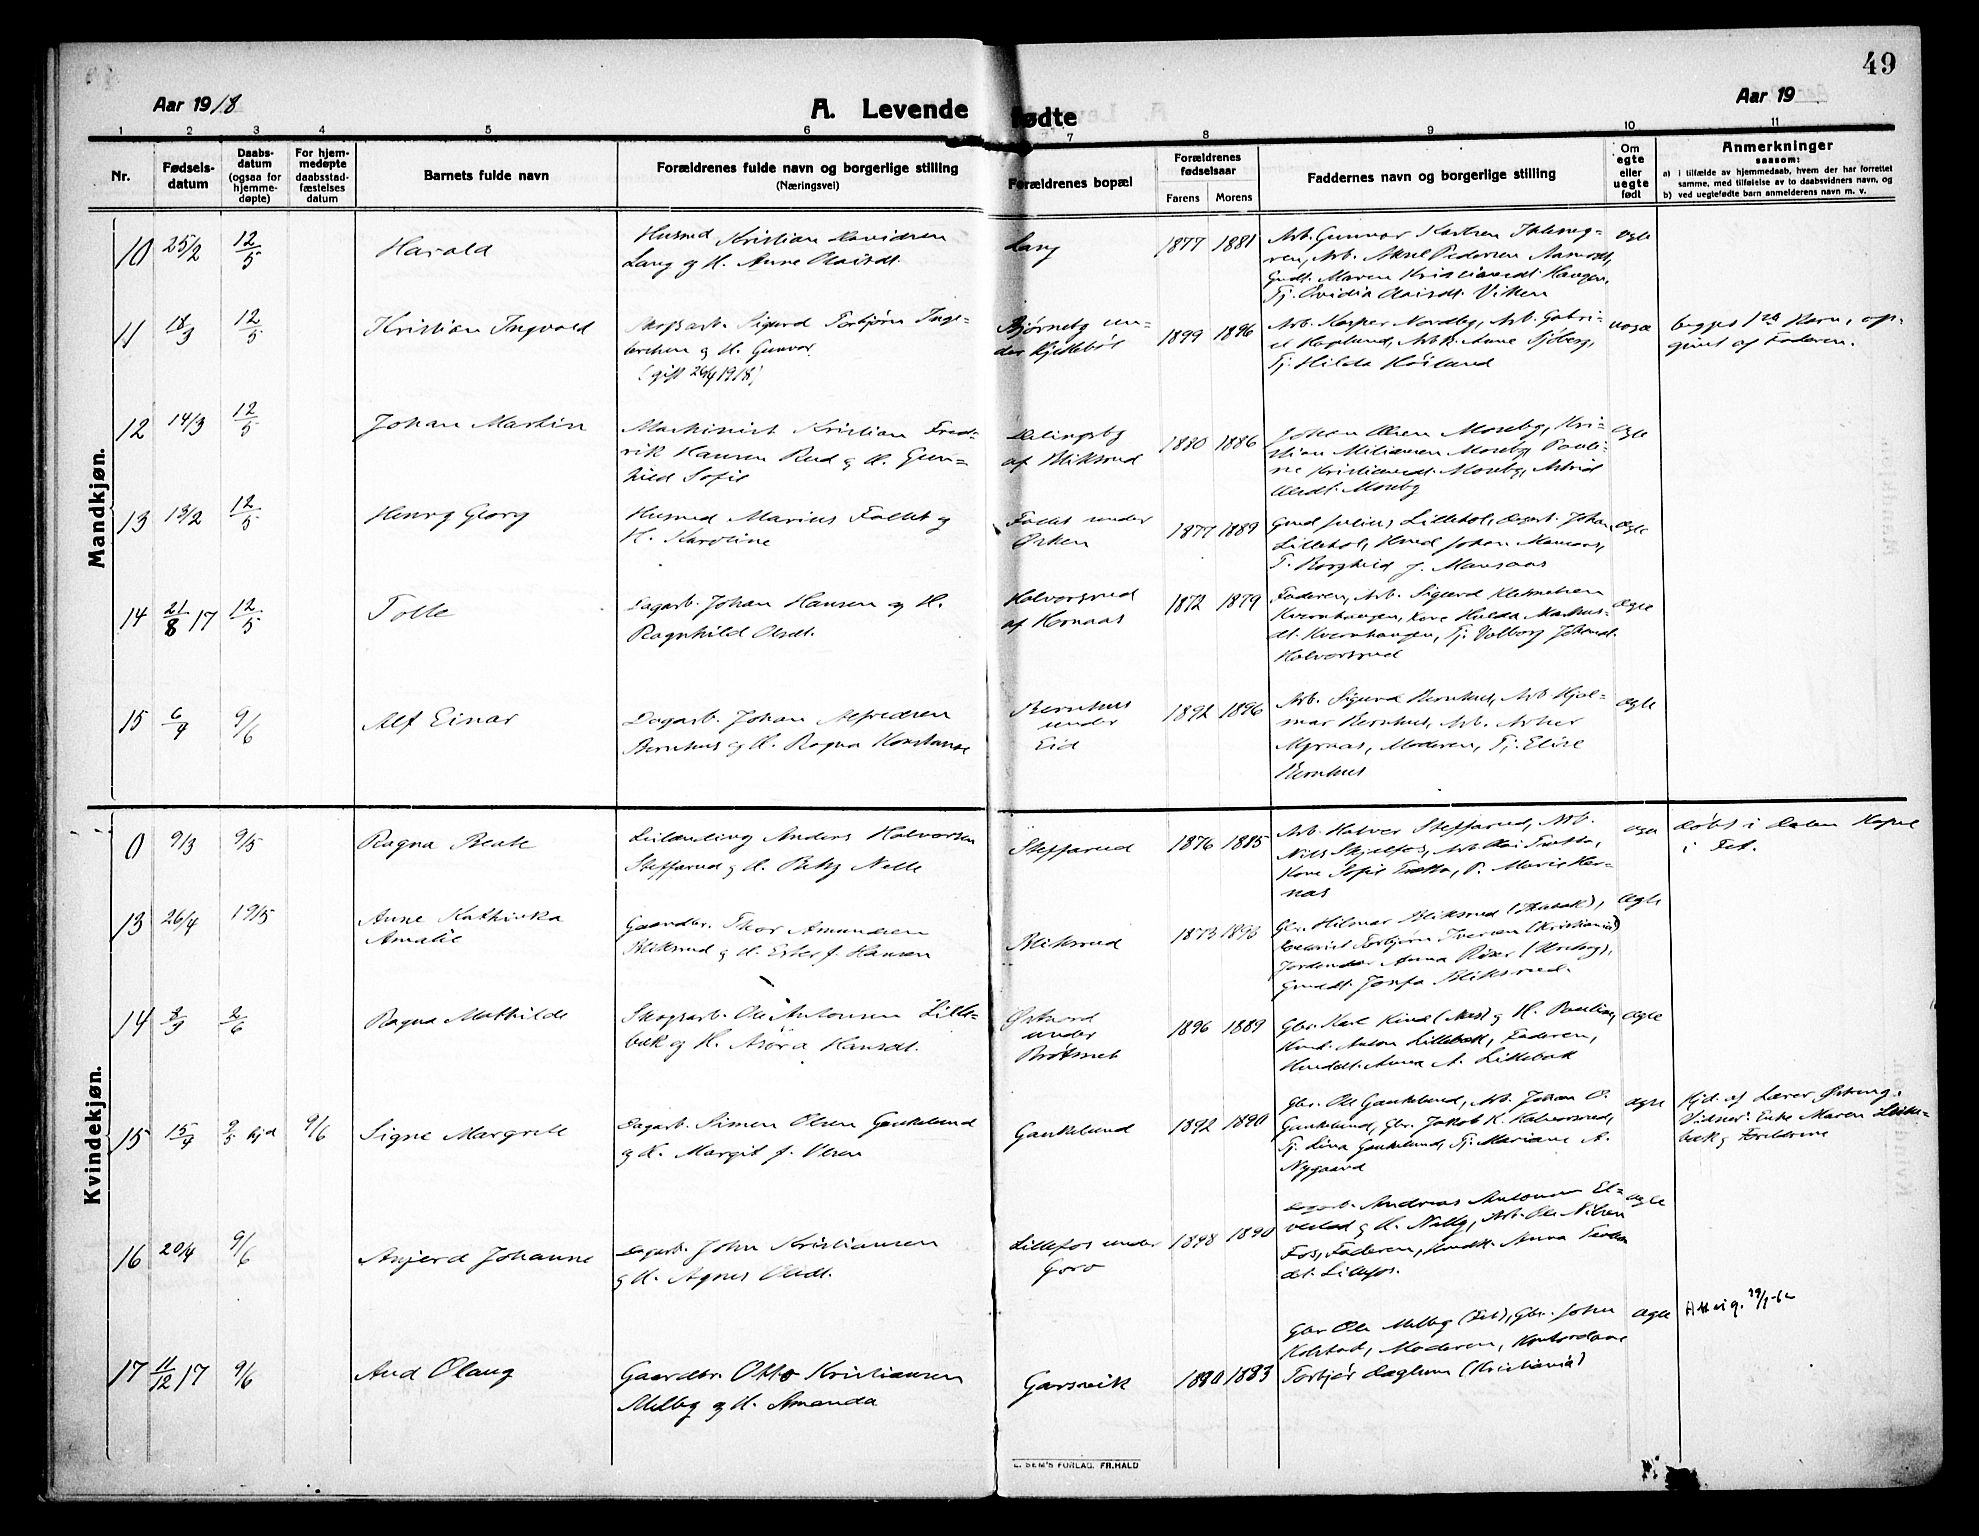 49
Aar 1918
A. Levende fødte
Aar 19
1 2 3 4 5 6 7 8 9 10 11
Nr.
Fødsels-
datum
Daabs-
datum
(ogsaa for
hjemme-
døpte)
For hjem-
medøpte
daabsstad-
fæstelses
datum
Barnets fulde navn
Forældrenes fulde navn og borgerlige stilling
(Næringsvei)
Forældrenes bopæl
Forældrenes
fødselsaar
Farens Morens
Faddernes navn og borgerlige stilling
Om
egte
eller
uegte
født
Anmerkninger
saasom:
a) i tilfælde av hjemmedaab, hvem der har forrettet
samme, med tilføielse av to daabsvidners navn, og
b) ved uegtefødte barn anmelderens navn m. v.
Mandkjøn.
10 25/2 12/5 Harald
Husmd Kristian Davidsen
Lang og H. Anne Olaisdt.
Lang
1877 1881
Arb. Gunvor
Arb. Aksel Pedersen Aamodt,
Gmdt. Maren Kristiansdt. Haugen,
Tj. Ovidia Olaisdt. Vikken
ægte
11 18/3 12/5 Kristian Ingvald
Skogsarb. Sigurd Torbjørn Inge-
brethsen og H. Gunvor
(gift 26/4 1918)
Bjørneby un-
der Kjellebøl
1899 1896
Arb. Kasper Nordby, Arb. Gabri-
el Haglund, Anne Sjøberg,
Tj. Hilda Høilund
uægte
begges 1ste barn, op-
givet af Faderen.
12 14/3 12/5 Johan Martin
Maskinist Kristian Fred-
rik Hansen Rud og H. Gun-
hild Sofie
Delingsby
af Bliksrud
1880 1886
Johan Olsen Moseby, Kri-
stian Moseby, Pauli-
ne Kristiansdt. Moseby, Astrid
Olsdt. Moseby
ægte
13 13/2 12/5 Henry Georg
Husmd Marius Fallet og
H. Karoline
Fallet under
Ørken
1877 1889
Gmd Julius Lillebol, Dagarb. Johan
Lillebol, Hmd Johan Mansaas,
T. Borghild J. Mansaas
ægte
14 21/8 17 12/5 Tolle
Dagarb. Johan Hansen og H.
Ragnhild Olsdt.
Halvorsrud
af Hornaas
1872 1879
Faderen, Arb. Sigurd Klemetsen
Kvernhaugen, Kone Hulda Markus-
dt. Kvernhaugen, Tj. Valborg Johansdt.
Halvorsrud
ægte
15 6/4 9/6 Alf Einar
Dagarb. Johan Alfredsen
Bernhus og H. Ragna Konstanse
Bernhus
under
Eid
1892 1896
Arb. Sigurd Bernhus, Arb. Hjal-
mar Bernhus, Arb. Asber
Myraas, Moderen, Tj. Elise
Bernhus
ægte
Kvindekjøn.
0 9/3 9/5 Ragna Beate
Anders Halvorsen
Steffarud og H. Betzy Nelle
Steffarud
1876 1885
Arb. Halvor Steffarud, Arb.
Nils Skjelfos, Arb. Olai Trætta,
Kone Sofie Trætta, P. Marie Her-
nas
ægte
døbt i Dalen Kapel
i Fet.
13 26/4 19/5 Anne Kathinka
Amalie
Gaardbr. Thor Amundsen
Bliksrud og H. Ester f. Hansen
Bliksrud
1873 1893
Gbr. Hilmar Bliksrud
Torbjørn Iversen (Kristiania)
Jordmoder Anna
Gmdt. Josefa Bliksrud.
ægte
14 8/3 2/6 Ragna Mathilde
Skogsarb. Ole Antonsen Lille-
bæk og H. Asora Hansdt.
Østnord
under
Brøtsnet
1896 1889
Gbr. Karl Kind (Aas) og H. Pauline,
Hmd. Anton Lillebæk, Faderen,
Hmddt. Anna A. Lillebæk
ægte
15 15/4 9/5 hjd 9/6 Signe Margrete
Dagarb. Simen Olsen Gaukelund
og H. Margit f. Olsen
Gaukelund
1892 1890
Gbr. Ole Gaukelund, Arb. Johan O.
Gaukelund, Gbr. Jakob K. Halvorsrud,
Tj. Lina Gaukelund, Tj. Mariane A.
Nygaard
ægte
Hjd. af Lærer Østreng.
Vidner: Enke Maren Lille-
bæk og Forældrene
16 20/4 9/6 Asjerd Johanne
Dagarb. John Kristiansen
og H. Agnes Olsdt.
Lillefos under
Goro
1898 1890
Dagarb. Andreas Antonsen El-
vestad og H. Nelly, Arb. Ole Nilsen
Fos, Faderen, Anna
dt. Lillefos.
ægte
17 11/12 17 9/6 Aud Olaug
Gaardbr. Otto Kristiansen
Melby og H. Amanda
Garsvik
1880 1883
Gbr Ole Melby (Fet), Gbr. John
Kolstad, Moderen, Kontordame
Torbjør Daglum (Kristiania)
ægte
Attvig.
E. SEM'S FORLAG. FR.HALD